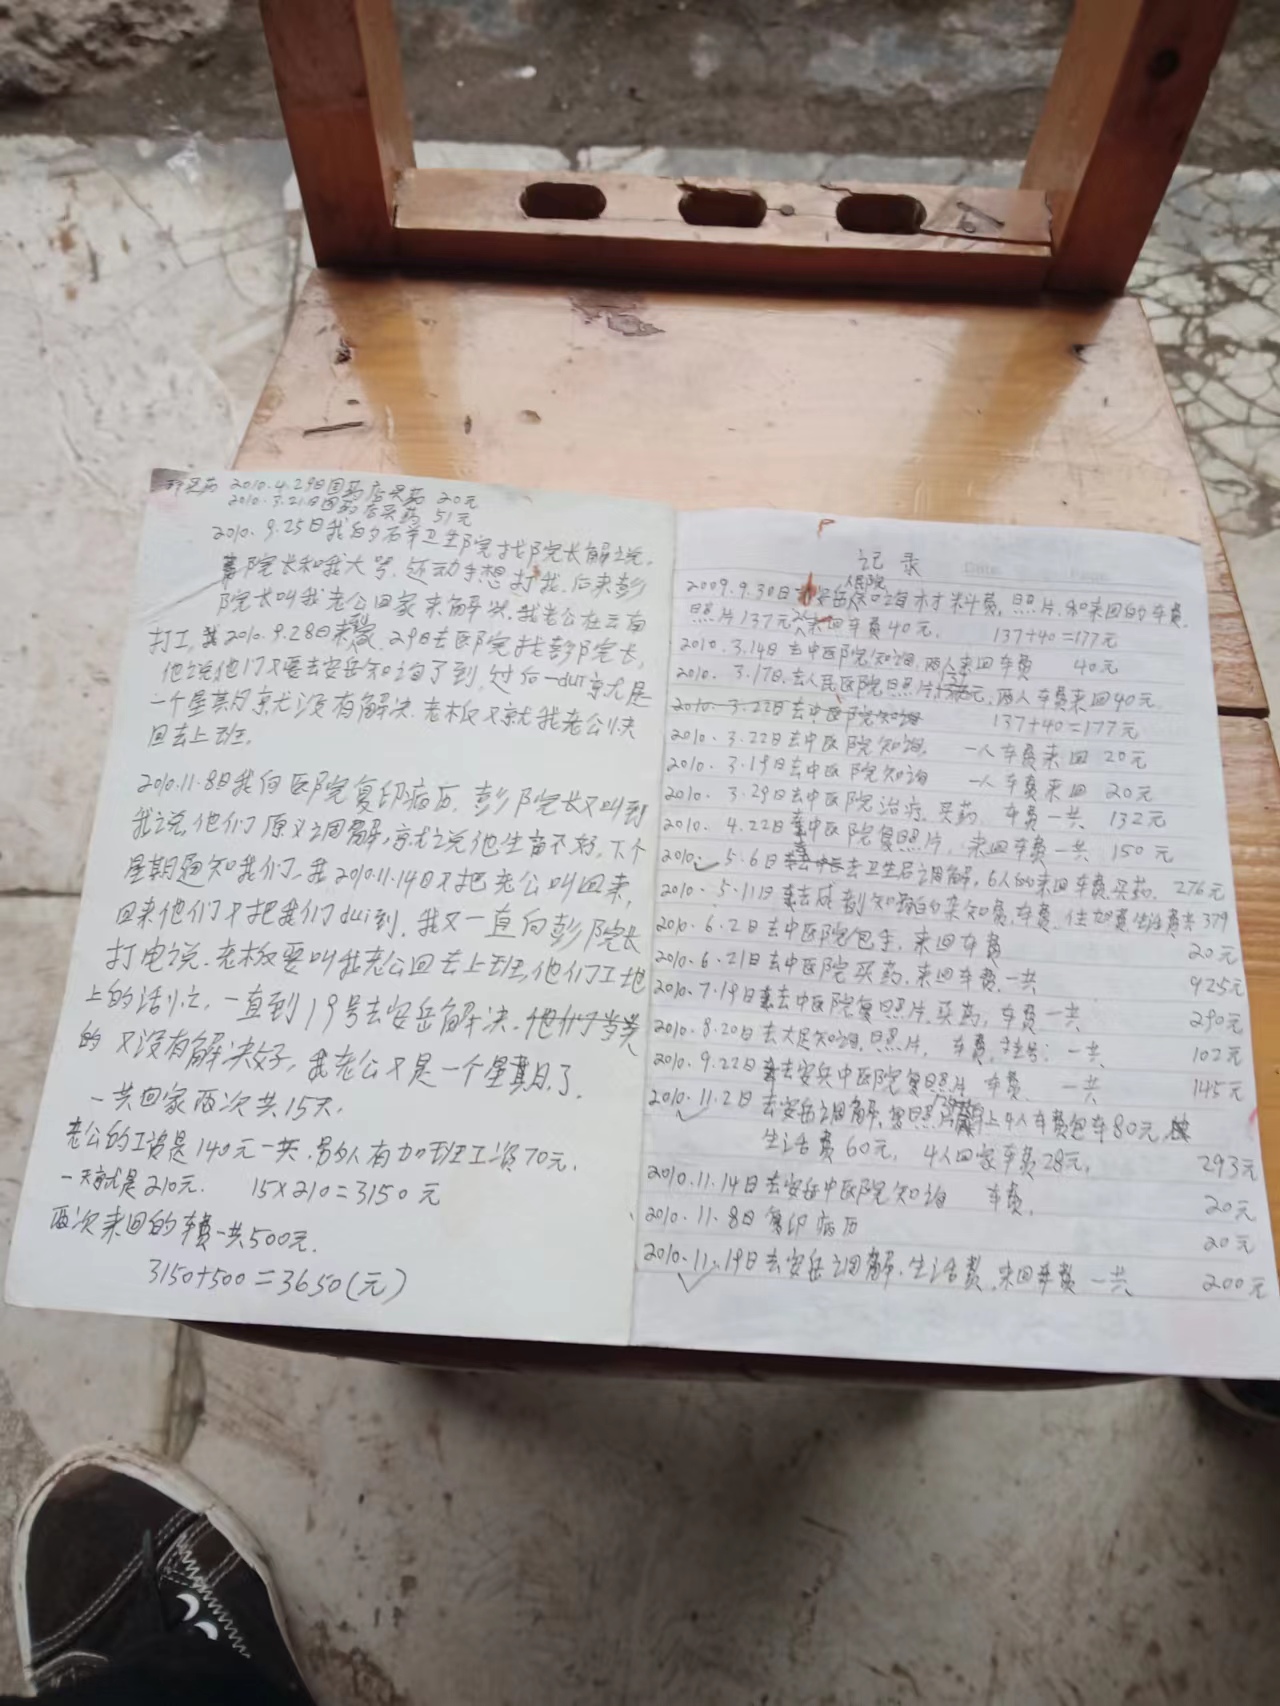 2010.4.29日国药店买药 20元
2010.3.21日国药店买药 51元
2010.9.25日我向石羊卫生院找院长解说。
院长和我大号,还动手想打我,后来彭
院长叫我老公回家来解决,我老公在云南
打工,我2010.9.28日来,29日去医院找彭院长,
他说他们又要去安岳知询了到,过后一dui就是
一个星期就没有解决.老板又求我老公快
回去上班.
2010.11.8日我向医院复印病历,彭院长又叫到
我说,他们原义调解,就说他生畜不好,下个
星期通知我们,我2010.11.14日又把老公叫回来,
回来他们又把我们dui到,我又一直向彭院长
打电说.老板要叫我老公回去上班,他们工地
上的活忙,一直到19号去安岳解决.他们
的又没有解决好,我老公又是一个星期了.
一共回家两次共15天.
老公的工资是140元一共,另外有加班工资70元.
一天就是210元. 15×210=3150元
两次来回的车费一共500元.
3150+500=3650(元)
记录
人民院
2009.9.30日去安岳知询材料费,照片.和来回的车费.
照片137元来回车费40元. 137+40=177元
2010.3.14日去中医院知询,两人来回车费 40元
2010.3.17日.去人民医院照片元,两人车费来回40元
2010.3.22日去中医院知询 137+40=177元
2010.3.22日去中医院知询. 一人车费来回20元
2010.3.19日去中医院知询 一人车费来回 20元
2010.3.29日去中医院治疗.买药. 车费一共 132元
2010.4.22日中医院复照片,来回车费一共 150元
2010.5.6日去卫生局调解,6人的来回车费.买药. 276元
2010.5.11日去成都知询的知费.车费.住宿费.生活费共379
2010.6.2日去中医院包手,来回车费 20元
2010.6.21日去中医院买药,来回车费.一共 925元
2010.7.19日去中医院复照片.买药,车费一共 290元
2010.8.20日去大足知询.照片, 车费,挂号: 一共 102元
2010.9.22日去安岳中医院复照片 车费. 一共 145元
2010.11.2日去安岳调解.复照片上4人车费包车80元.
生活费60元, 4人回家车费28元, 293元
2010.11.14日去安岳中医院知询 车费, 20元
2010.11.8日复印病历 20元
2010.11.19日去安岳调解.生活费.来回车费一共 200元